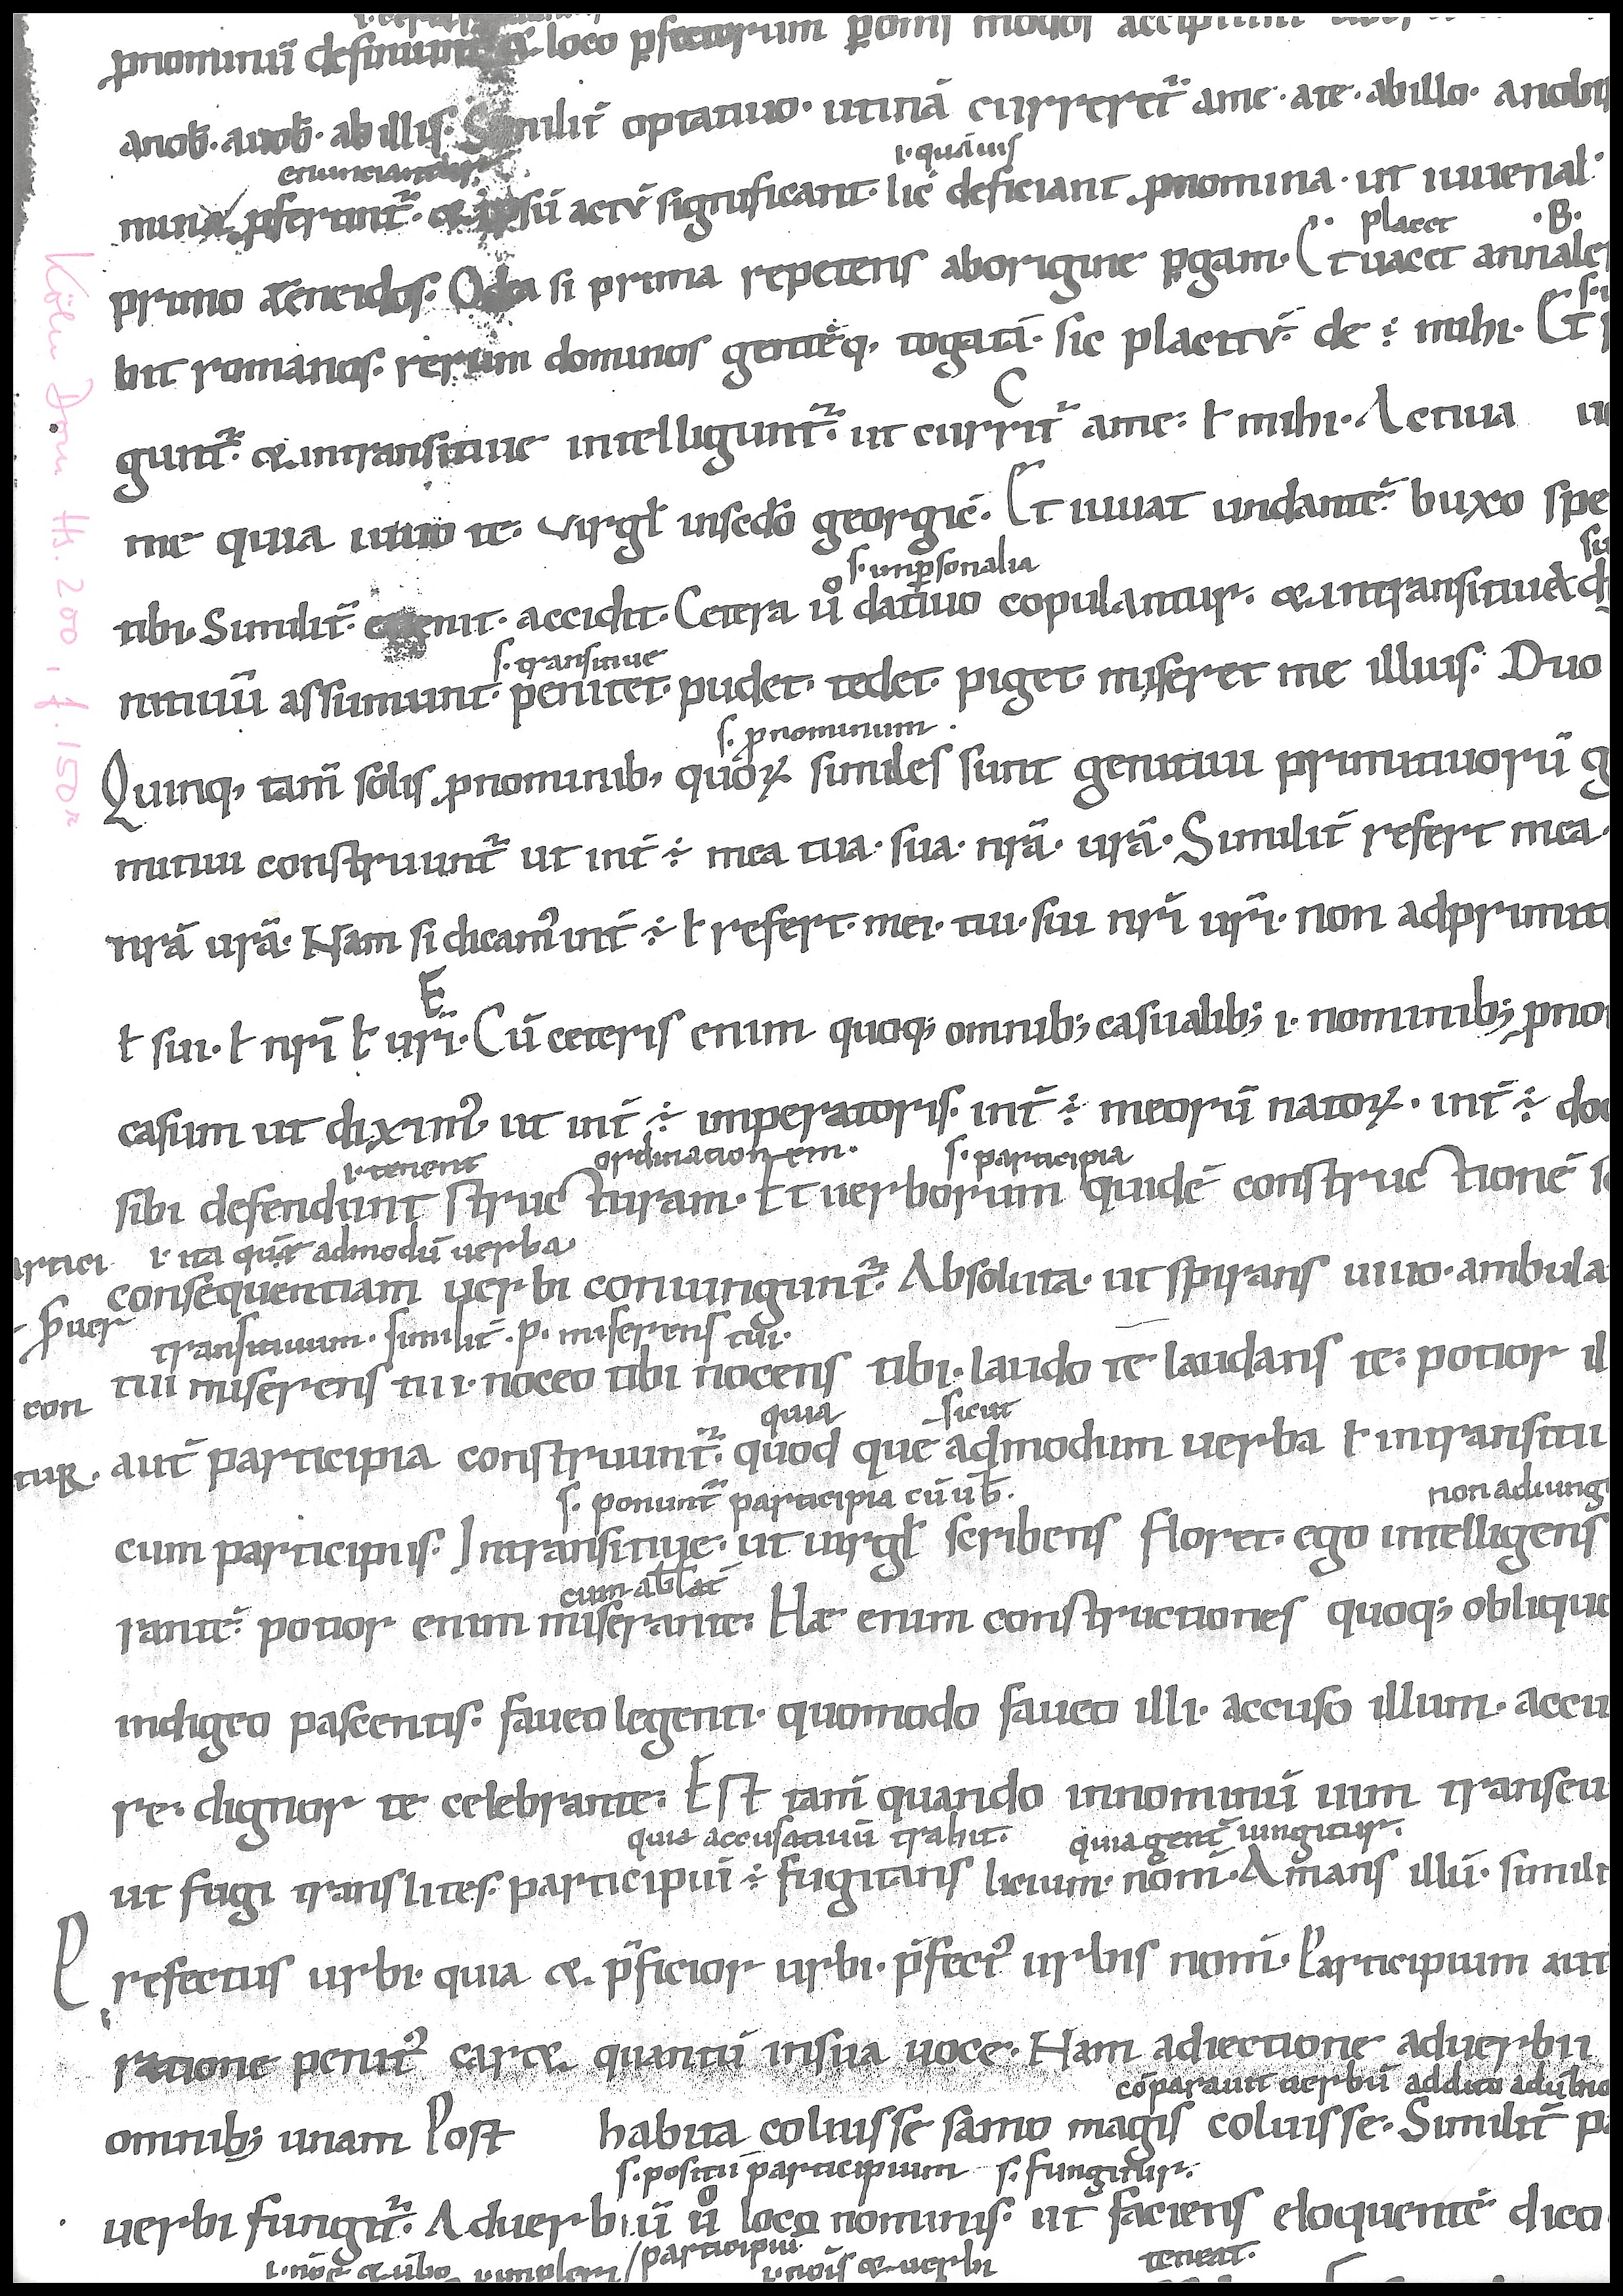 pnominū definiunt & loco pfectorum pomis modos accipiunt
anob̄. auob̄. abillis. Similit̄ optatiuo. utinā curreret᷑ ame. ate. abillo. anobis
enunciantur
i. quāuis
mina pferunt᷑. & ipsū actū significant. lic̄ deficiant pnomina. ut iuuenal᷑
placet
.B.
primo æneidos. O dea si prima repetens aborigine pgam. Et uacet annales
bit romanos. rerum dominos gentēq, togatā. sic placitū. de ÷ mihi. Et
C
gunt᷑. & intransitiue intelligunt᷑. ut currit᷑ ame. ł mihi. Actiua
me quia uitio te. virgł insedō georgic̄. Et iuuat undantē buxo spe
s. inpsonalia
tibi. Similit̄ euenit. accidit. Cetera ů datiuo copulantur. & intransitiuā
s. transitiue
nitiuū assumunt. penitet. pudet. tedet. piget. miseret me illius. Duo
s. pnominum
Quinq, tam̄ solis pnominib, quoꝝ similes sunt genitiui primitiuorū g
nitiui construunt᷑ ut int̄ ÷ mea tua. sua. nrā. urā. Similit̄ refert mea.
nrā urā. Nam si dicam᷒ int̄ ÷ ł refert. mei. tui. sui nrī urī. non adprimiti
E
ł sui. ł nrī ł urī. Cū ceteris enim quoq; omnib; casualib; i. nominib; pno
casum ut dixim᷒, ut int̄ ÷ imperatoris. int̄ ÷ meorū natoꝝ. int̄ ÷ doc
i. tenent
ordinationem.
s. participia
sibi defendunt structuram. Et uerborum quidē constructionē
artici
i. ita quē admodū uerba
consequentiam uerbi coniungunt᷑. Absoluta. ut spirans uiuo. ambula
puer
transitiuum. similit̄. p. miserens tui.
con
tui miserens tui. noceo tibi nocens tibi. laudo te laudans te. potior il
quia
sicut
tuꝶ. aut̄ participia construunt᷑. quod que admodum uerba ł intransitiu
s. ponunt᷑ participia cū ub̄.
non adiung
cum participiis. Intransitiue. ut uirgł scribens floret. ego intelligens
cum abłat̄
rante. potior enim miserante. Hæ enim constructiones quoq; obliquo
indigeo pascentis. faueo legenti. quomodo faueo illi. accuso illum. accu
re. dignor te celebrante. Est tam̄ quando innominū uim transeu
quia accusatiuū trahit.
quia gent̄ iungitur.
ut fugitans lites. participiū ÷ fugitans litium. nom̄. Amans illū. similit
Prefectus urbi. quia & p̄ficior urbi. p̄fect᷒ urbis nom̄. Participium aut
ratione penit᷒ caret. quantū insua uoce. Nam adiectione aduerbii
cōparauit uerbū addito aduƀio
omnib; unam Post habita coluisse samo magis coluisse. Similit̄ pa
s. positū participium
s. fungitur.
uerbi fungit᷑. Aduerbiū ů loco nominis. ut faciens eloquentē dico
participii
i. nois & uerbi
teneat.
Köln Dom Hs. 200, f. 150r